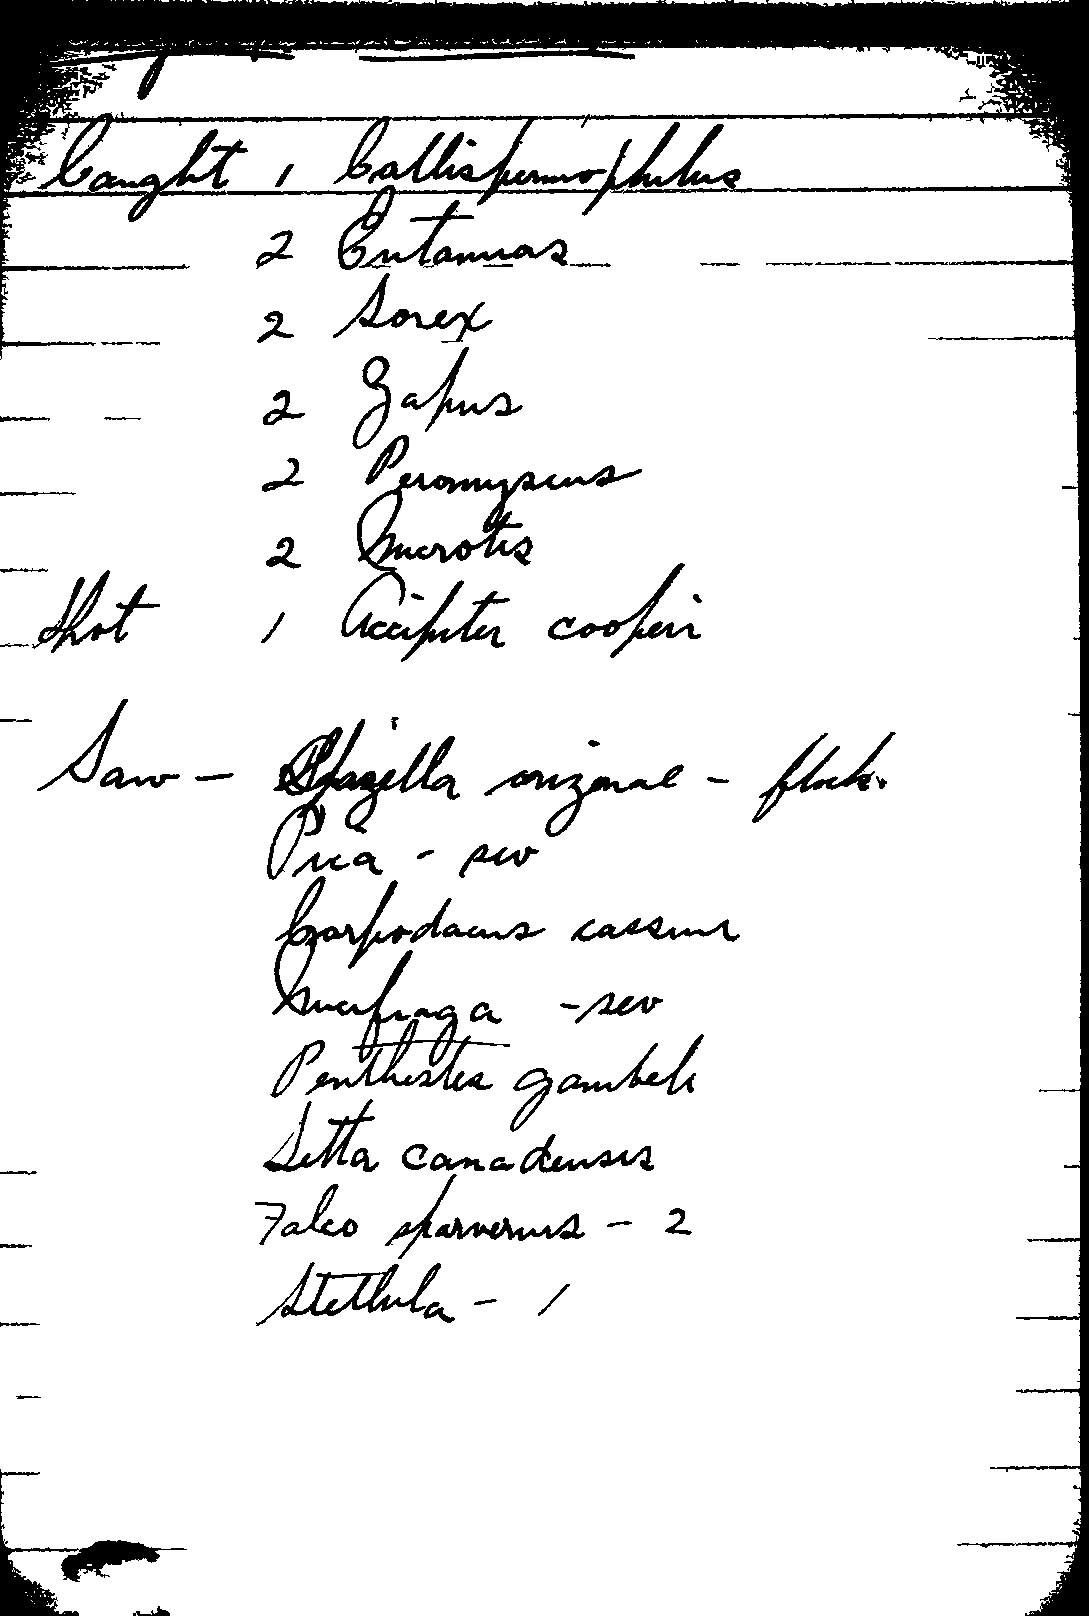 Caught 1 Callispermophilus
2 Eutamias
2 Sorex
2 Zapus
2 Peromyscus
2 Microtis
Shot 1 Accipiter cooperi
Saw — Spizella arizonae - flock.
Pica - sev
Carpodacus cassini
Nucifraga - sev
Penthestes gambeli
Sitta canadensis
Falco sparverius - 2
Stellula - 1